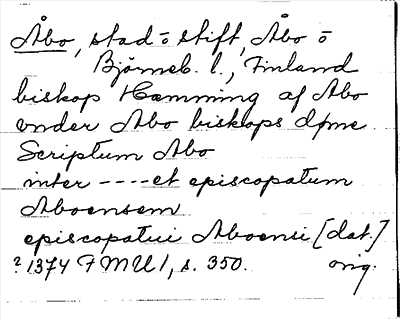 Åbo, stad ō stift, Åbo ō
Björneb. l., Finland
biskop Hæmming af Abo
vnder Abo biskops døme
Scriptum Abo
inter ---- et episcopatum
Aboensem
episcopatui Aboensi [dat.]
? 1374 FMU 1, s. 350. orig.